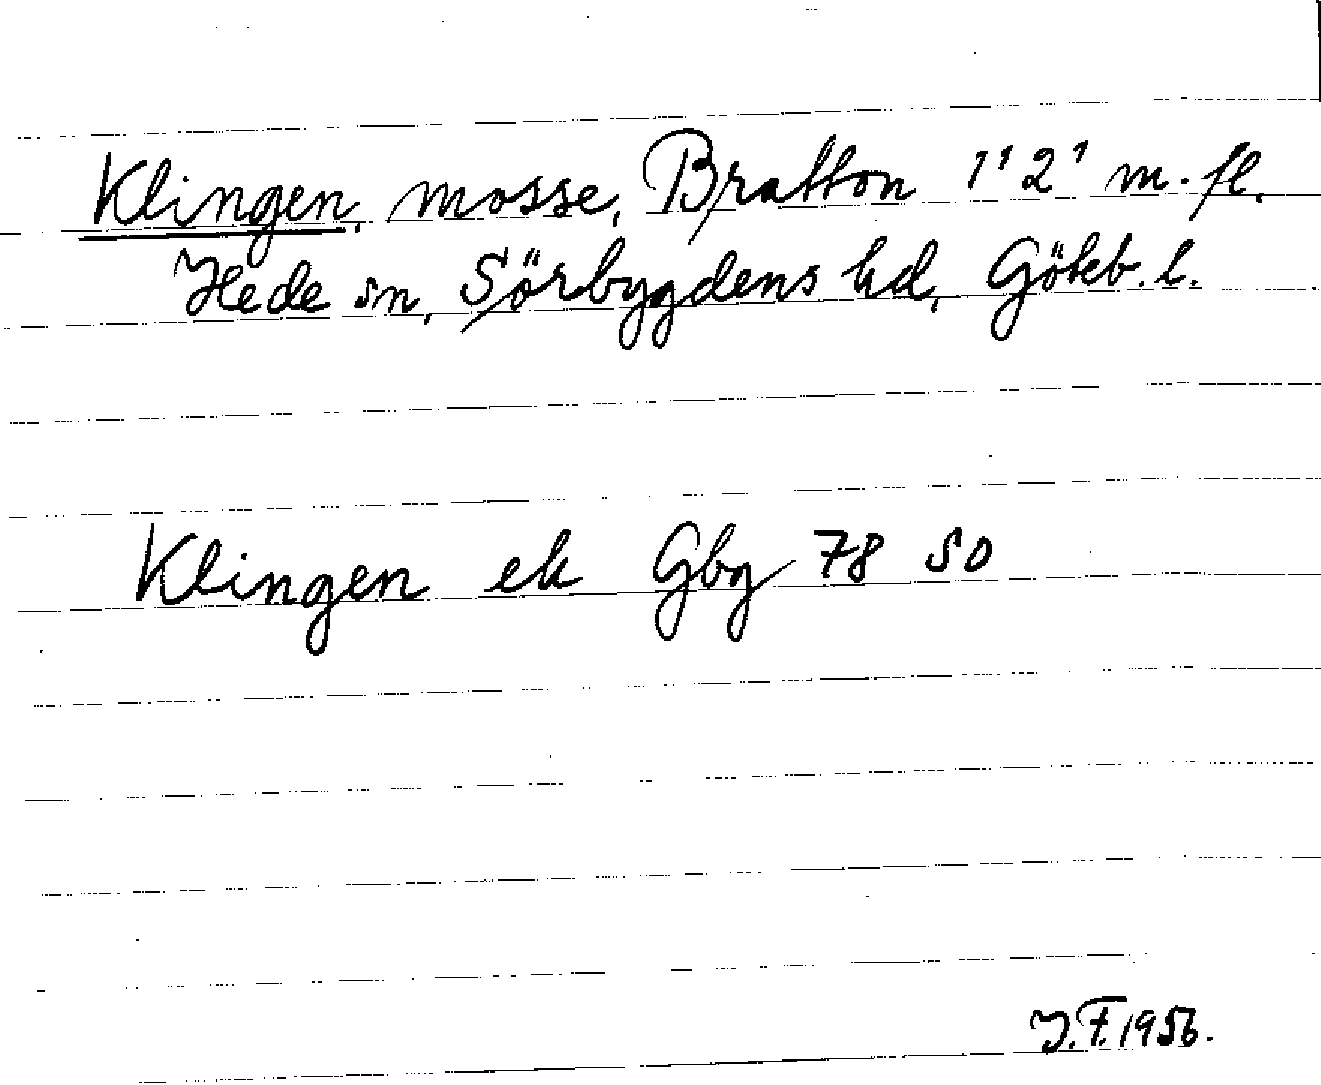 Klingen, mosse, Bratton 1¹ 2¹ m. fl.
Hede sn, Sörbygdens hd, Göteb. l.
Klingen ek Gbg 78 SO
J. F. 1956.